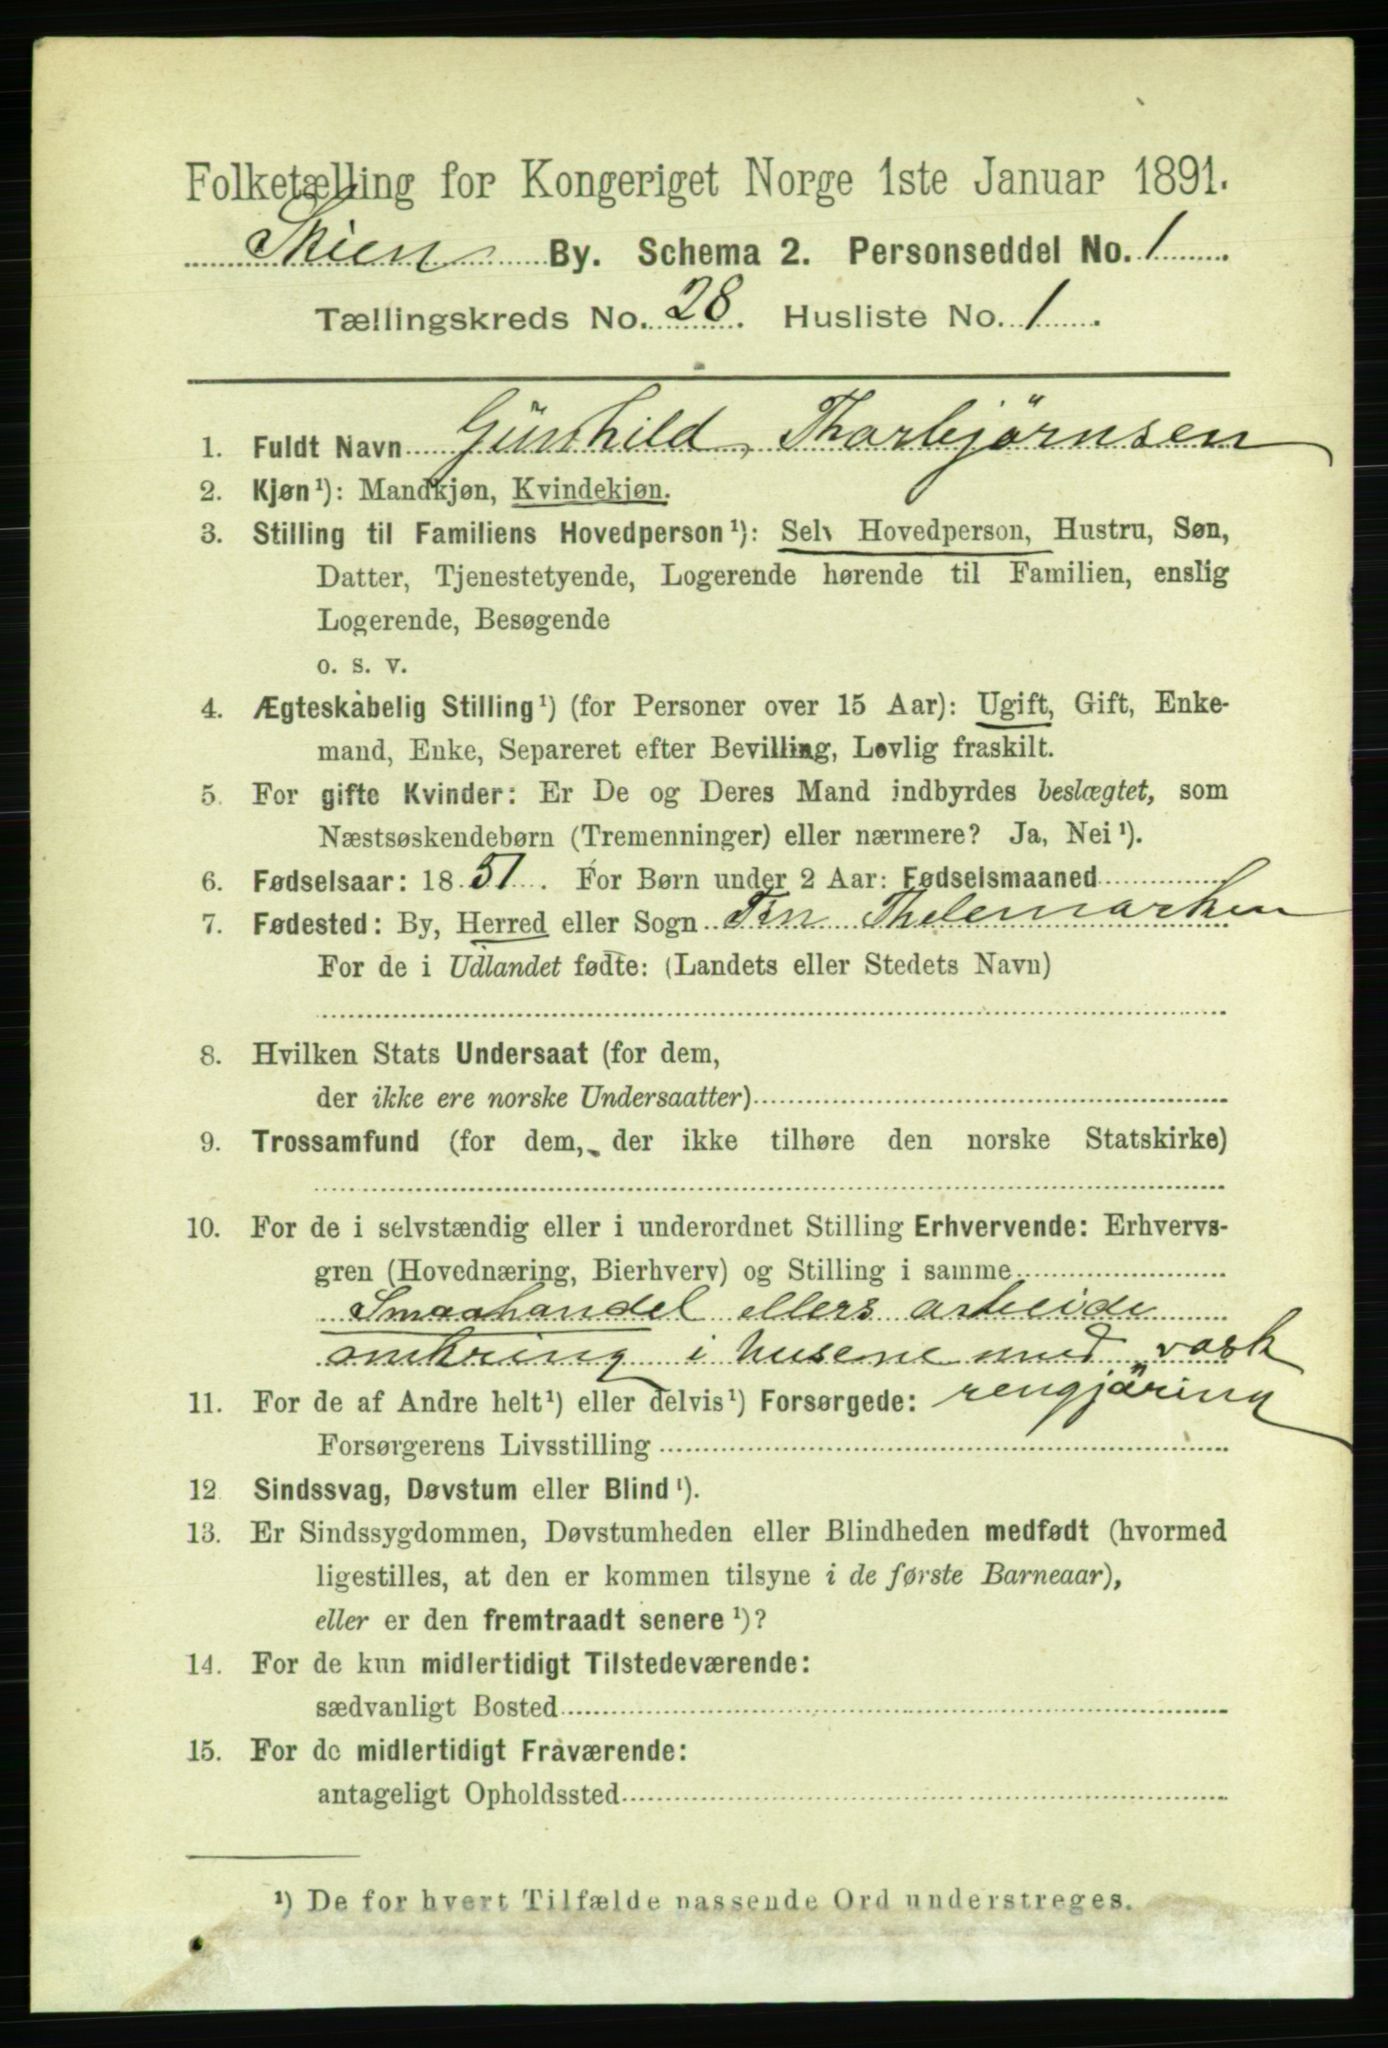 Folketælling for Kongeriget Norge 1ste Januar 1891.
Skien By. Schema 2. Personseddel No. 1
Tællingskreds No. 28. Husliste No. 1.
1. Fuldt Navn Günhild, Thorbjörnsen
2. Kjøn¹): Mandkjøn, Kvindekjøn.
3. Stilling til Familiens Hovedperson¹): Selv Hovedperson, Hustru, Søn,
Datter, Tjenestetyende, Logerende hørende til Familien, enslig
Logerende, Besøgende
o. s. v.
4. Ægteskabelig Stilling¹) (for Personer over 15 Aar): Ugift, Gift, Enke-
mand, Enke, Separeret efter Bevilling, Lovlig fraskilt.
5. For gifte Kvinder: Er De og Deres Mand indbyrdes beslægtet, som
Næstsøskendebørn (Tremenninger) eller nærmere? Ja, Nei¹).
6. Fødselsaar: 1851. For Børn under 2 Aar: Fødselsmaaned
7. Fødested: By, Herred eller Sogn Tin Thelemarken
For de i Udlandet fødte: (Landets eller Stedets Navn)
8. Hvilken Stats Undersaat (for dem,
der ikke ere norske Undersaatter)
9. Trossamfund (for dem, der ikke tilhøre den norske Statskirke)
10. For de i selvstændig eller i underordnet Stilling Erhvervende: Erhvervs-
gren (Hovednæring, Bierhverv) og Stilling i samme
Smaahandel ellers arbeide
omkring i husene med vask
11. For de af Andre helt¹) eller delvis¹) Forsørgede: rengjöring
Forsørgerens Livsstilling
12. Sindssvag, Døvstum eller Blind¹).
13. Er Sindssygdommen, Døvstumheden eller Blindheden medfødt (hvormed
ligestilles, at den er kommen tilsyne i de første Barneaar),
eller er den fremtraadt senere¹)?
14. For de kun midlertidigt Tilstedeværende:
sædvanligt Bosted
15. For de midlertidigt Fraværende:
antageligt Opholdssted
¹) De for hvert Tilfælde passende Ord understreges.